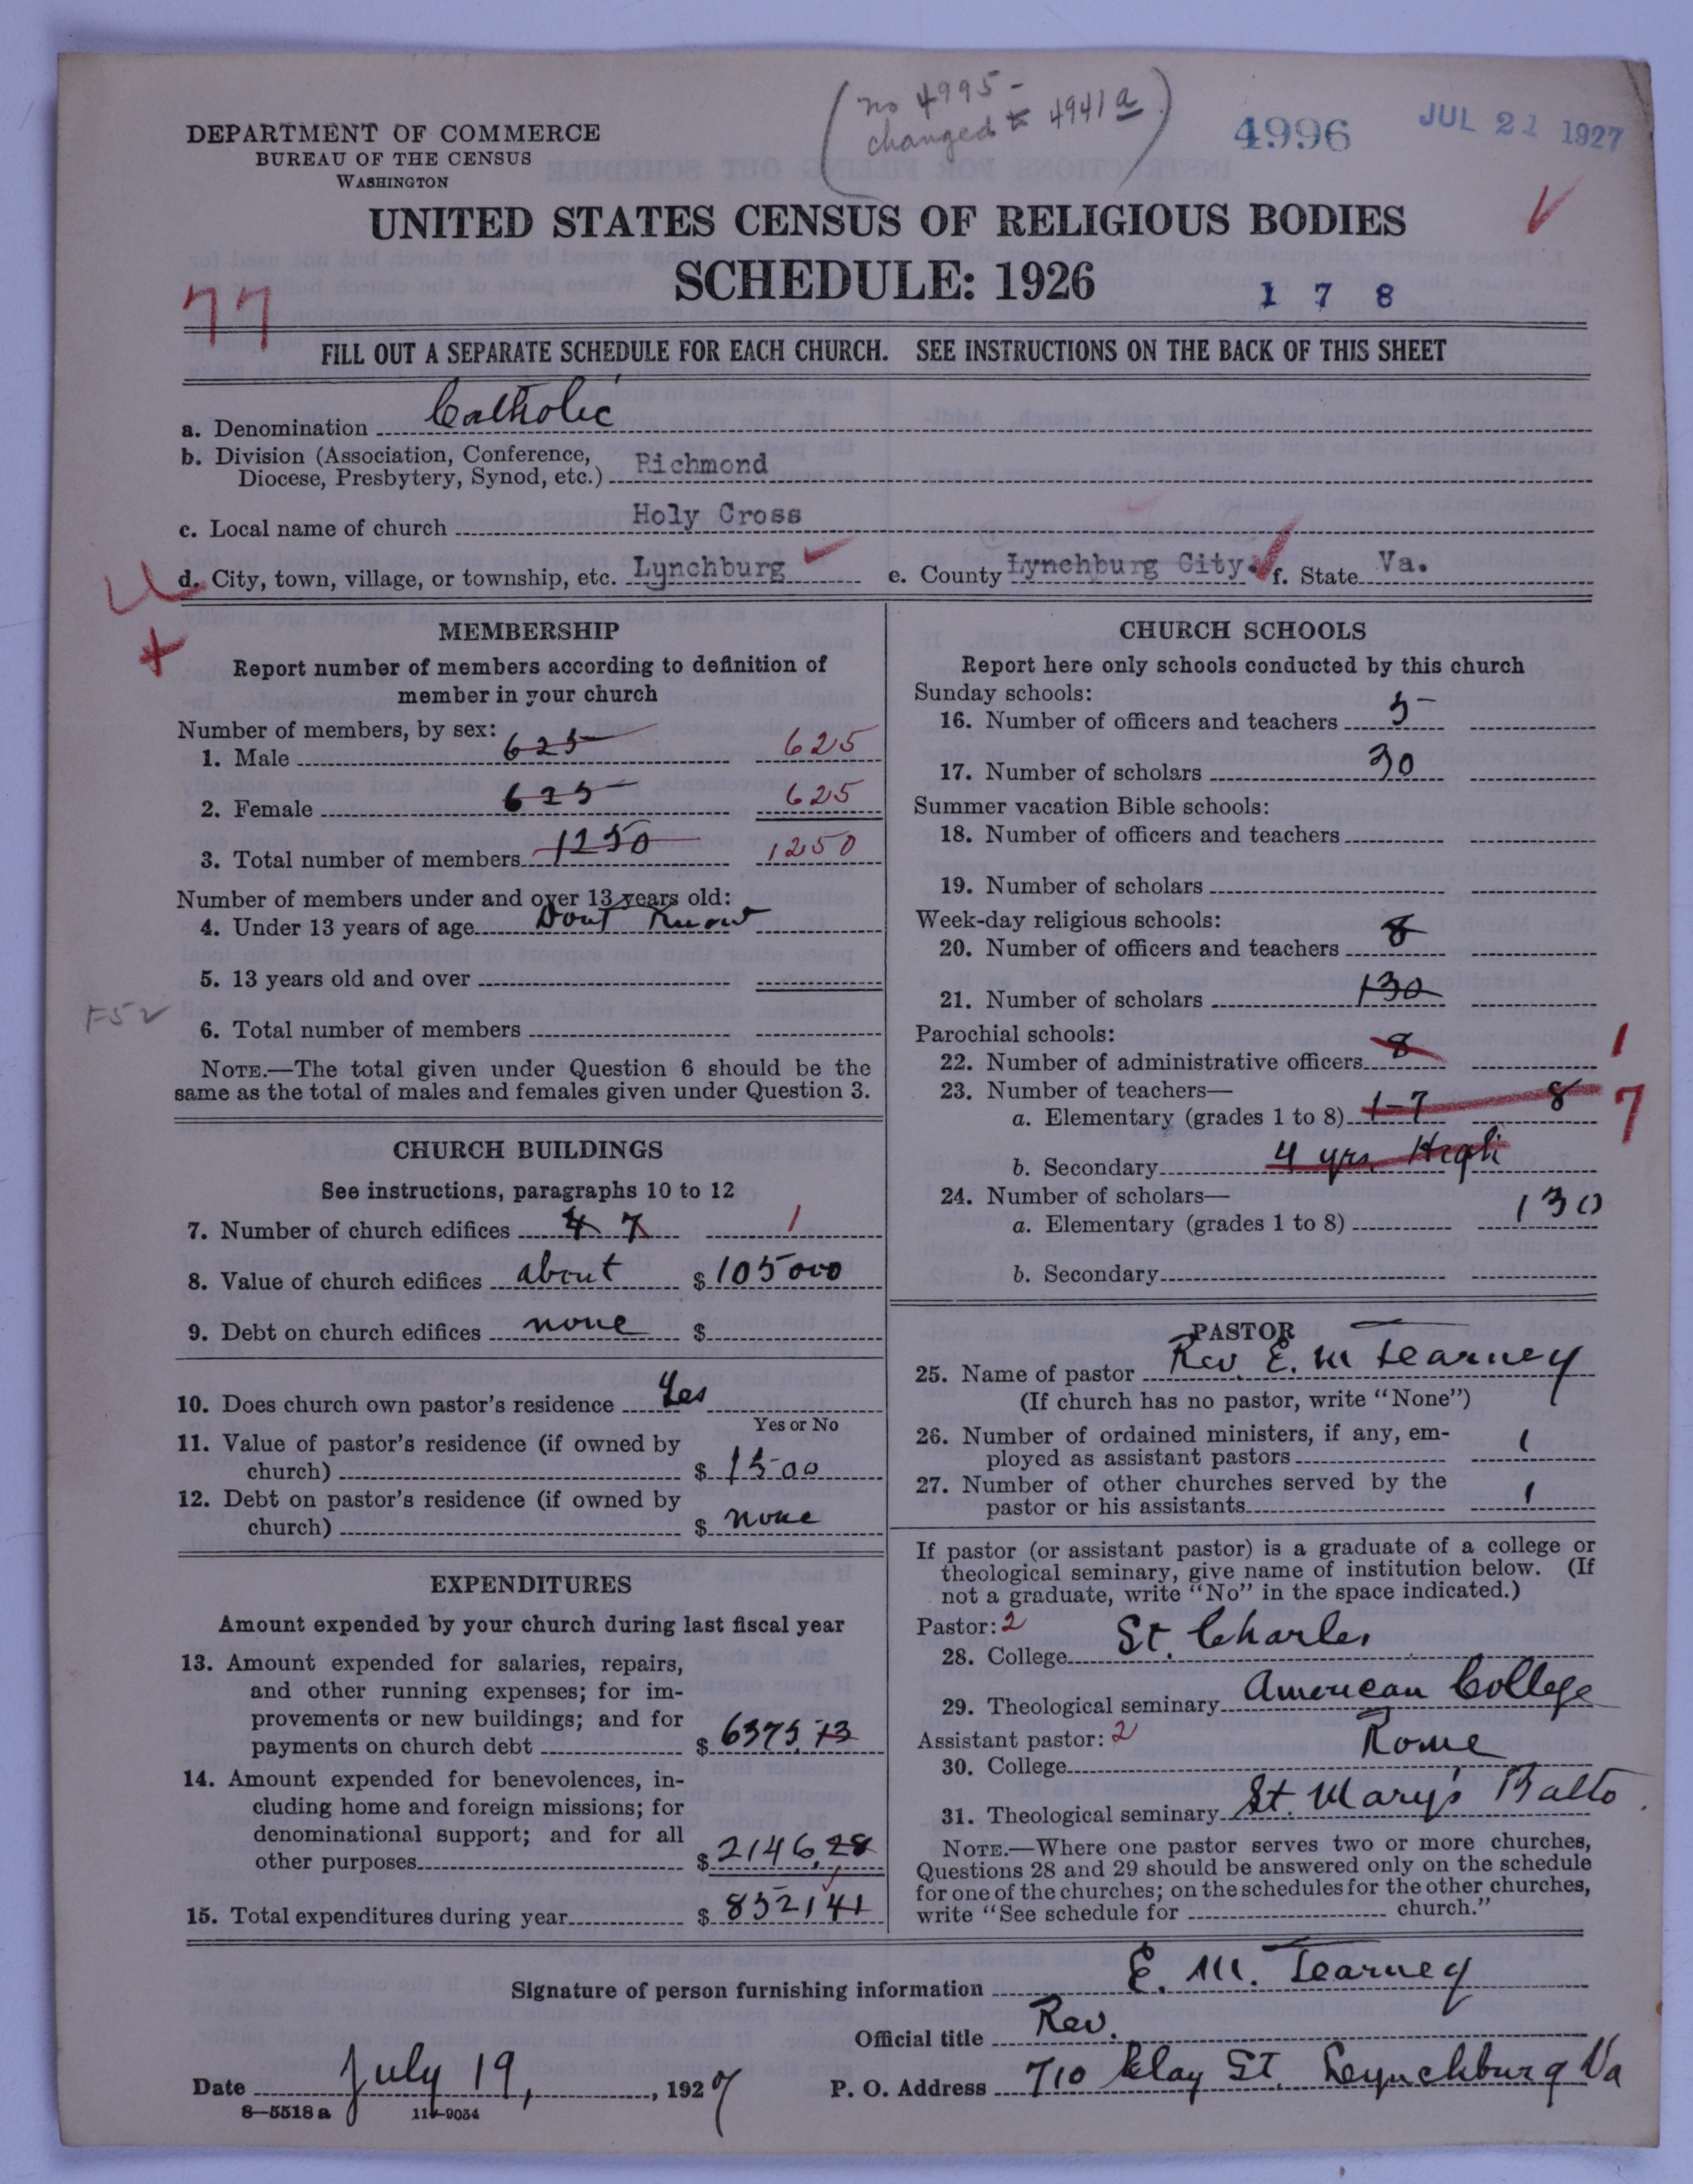 (no 4995 -
changed to 4941 a)
4996
JUL 21 1927
DEPARTMENT OF COMMERCE
BUREAU OF THE CENSUS
WASHINGTON
UNITED STATES CENSUS OF RELIGIOUS BODIES
SCHEDULE: 1926
77
1 7 8
FILL OUT A SEPARATE SCHEDULE FOR EACH CHURCH. SEE INSTRUCTIONS ON THE BACK OF THIS SHEET
a. Denomination Catholic
b. Division (Association, Conference,
Diocese, Presbytery, Synod, etc.) Richmond
c. Local name of church Holy Cross
d. City, town, village, or township, etc. Lynchburg e. County Lynchburg City. f. State Va.
MEMBERSHIP
Report number of members according to definition of
member in your church
Number of members, by sex:
1. Male 625 625
2. Female 625 625
3. Total number of members 1250 1250
Number of members under and over 13 years old:
4. Under 13 years of age Dont Know
5. 13 years old and over
6. Total number of members
NOTE.—The total given under Question 6 should be the
same as the total of males and females given under Question 3.
CHURCH BUILDINGS
See instructions, paragraphs 10 to 12
7. Number of church edifices 4 7 1
8. Value of church edifices about $ 105000
9. Debt on church edifices none $
10. Does church own pastor's residence Yes
Yes or No
11. Value of pastor's residence (if owned by
church) $ 1500
12. Debt on pastor's residence (if owned by
church) $ none
EXPENDITURES
Amount expended by your church during last fiscal year
13. Amount expended for salaries, repairs,
and other running expenses; for im-
provements or new buildings; and for
payments on church debt $ 6375.13
14. Amount expended for benevolences, in-
cluding home and foreign missions; for
denominational support; and for all
other purposes $ 2146.28
15. Total expenditures during year $ 8521 41
CHURCH SCHOOLS
Report here only schools conducted by this church
Sunday schools:
16. Number of officers and teachers 5
17. Number of scholars 30
Summer vacation Bible schools:
18. Number of officers and teachers
19. Number of scholars
Week-day religious schools:
20. Number of officers and teachers 8
21. Number of scholars 130
Parochial schools:
22. Number of administrative officers 8 1
23. Number of teachers—
a. Elementary (grades 1 to 8) 1-7 8 7
b. Secondary 4 yrs High
24. Number of scholars—
a. Elementary (grades 1 to 8) 130
b. Secondary
PASTOR
25. Name of pastor Rev. E. M Tearney
(If church has no pastor, write "None")
26. Number of ordained ministers, if any, em-
ployed as assistant pastors 1
27. Number of other churches served by the
pastor or his assistants 1
If pastor (or assistant pastor) is a graduate of a college or
theological seminary, give name of institution below. (If
not a graduate, write "No" in the space indicated.)
Pastor: 2
28. College St. Charles
29. Theological seminary American College
Assistant pastor: 2 Rome
30. College
31. Theological seminary St. Mary's Balto.
NOTE.—Where one pastor serves two or more churches,
Questions 28 and 29 should be answered only on the schedule
for one of the churches; on the schedules for the other churches,
write "See schedule for church."
Signature of person furnishing information E. M. Tearney
Official title Rev.
Date July 19, , 1927 P. O. Address 710 Clay St. Lynchburg Va
8—5518 a 11—9054